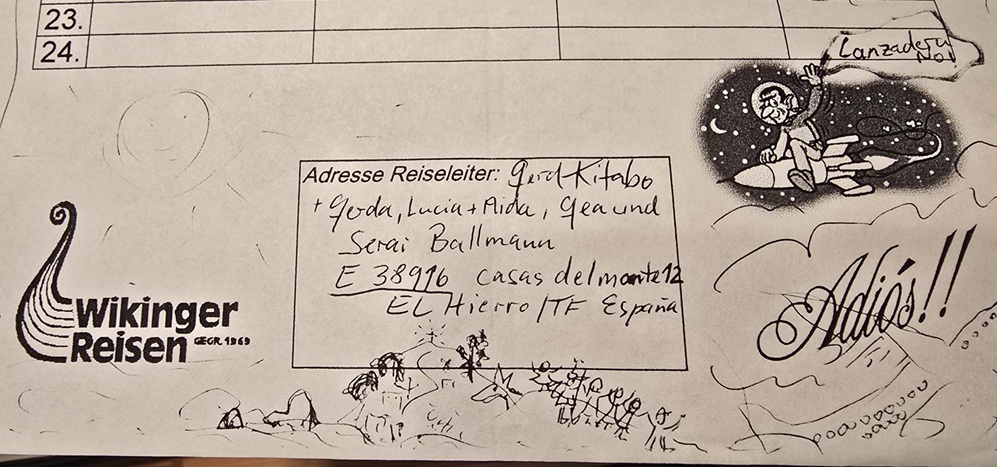 23.
24.
Lanzadera
No!
Adresse Reiseleiter: Gerd-Kitabo
+ Gerda, Lucia + Aida, Gea und
Serai Ballmann
E 38916 casas del monte 12
EL Hierro / TF España
Wikinger
Reisen GEGR. 1969
Adiós!!